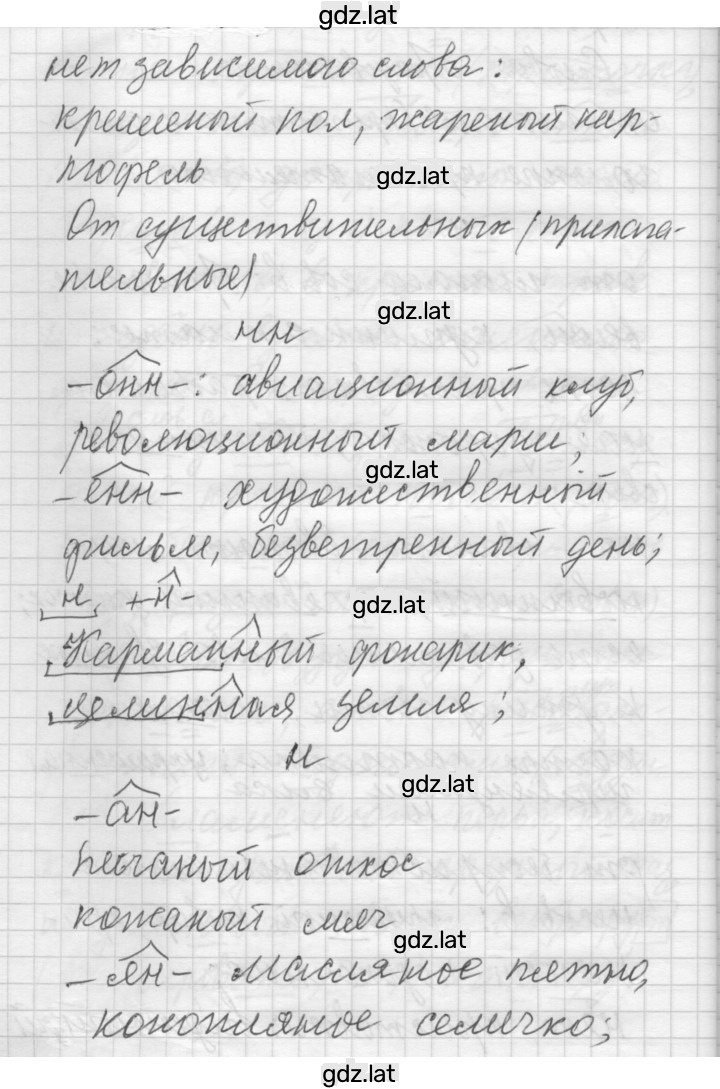 gdz.lat
нет зависимого слова:
крашеный пол, жареный кар-
тофель
gdz.lat
От существительных (прилага-
тельные)
gdz.lat
нн
-онн-: авиационный клуб,
революционный марш;
gdz.lat
-енн- художественный
фильм, безветренный день;
н +н-
gdz.lat
Карманный фонарик,
целинная земля;
н
gdz.lat
-ан-
песчаный откос
кожаный мяч
gdz.lat
-ян- масляное пятно,
конопляное семечко;
gdz.lat